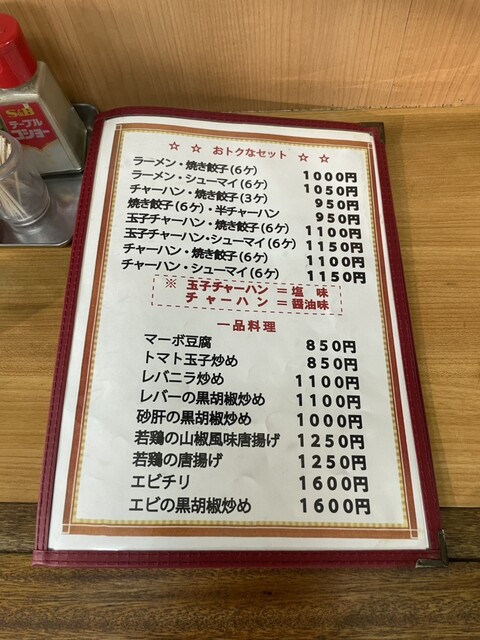 S&B
テーブル
コショー
☆ ☆ おトクなセット ☆ ☆
ラーメン・焼き餃子(6ケ) 1000円
ラーメン・シューマイ(6ケ) 1050円
チャーハン・焼き餃子(3ケ) 950円
焼き餃子(6ケ)・半チャーハン 950円
玉子チャーハン・焼き餃子(6ケ) 1100円
玉子チャーハン・シューマイ(6ケ) 1150円
チャーハン・焼き餃子(6ケ) 1100円
チャーハン・シューマイ(6ケ) 1150円
※ 玉子チャーハン＝塩 味
チャーハン＝醤油味
一品料理
マーボ豆腐 850円
トマト玉子炒め 850円
レバニラ炒め 1100円
レバーの黒胡椒炒め 1100円
砂肝の黒胡椒炒め 1000円
若鶏の山椒風味唐揚げ 1250円
若鶏の唐揚げ 1250円
エビチリ 1600円
エビの黒胡椒炒め 1600円